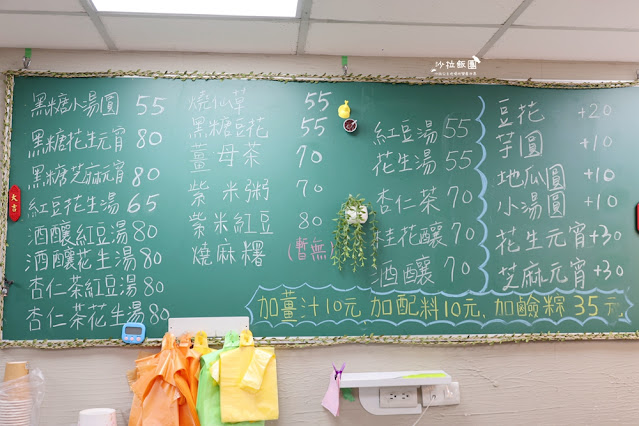 沙拉飯團
黑糖小湯圓 55
黑糖花生元宵 80
黑糖芝麻元宵 80
紅豆花生湯 65
酒釀紅豆湯 80
酒釀花生湯 80
杏仁茶紅豆湯 80
杏仁茶花生湯 80
燒仙草 55
黑糖豆花 55
薑母茶 70
紫米粥 70
紫米紅豆 80
燒麻糬 (暫無)
紅豆湯 55
花生湯 55
杏仁茶 70
桂花釀 70
酒釀 70
豆花 +20
芋圓 +10
地瓜圓 +10
小湯圓 +10
花生元宵 +30
芝麻元宵 +30
加薑汁10元 加配料10元、加鹼粽 35元
大吉